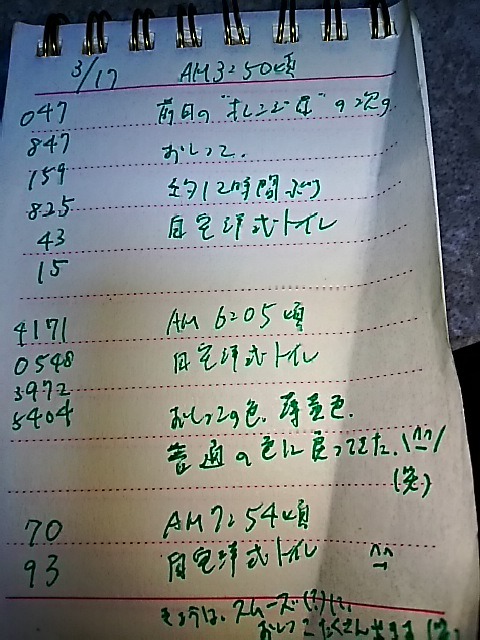 3/17 AM3:50頃
047 前日の"オレンジ色"の次の
847 おしっこ。
159 約12時間ぶり
825 自宅洋式トイレ
43
15
4171 AM 6:05頃
0548 自宅洋式トイレ
3972
5404 おしっこの色、薄黄色。
普通の色に戻ってきた。\(^^)/
(笑)
70 AM7:54頃
93 自宅洋式トイレ ^^
きょうは、スムーズ(?)に、
おしっこたくさん出ます